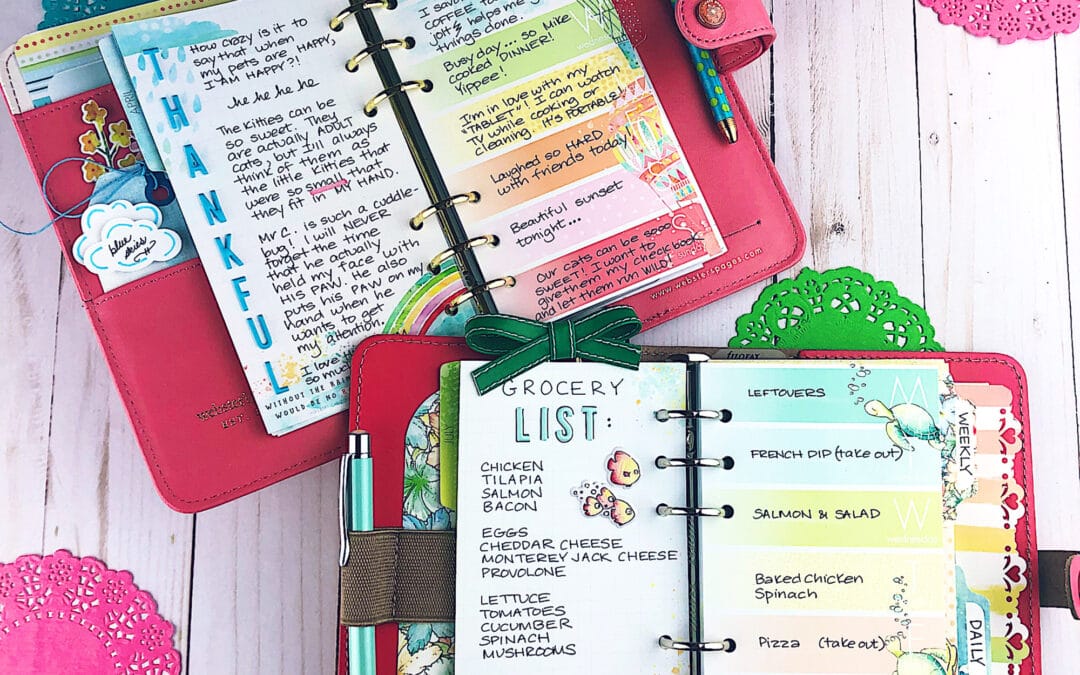 THANKFUL
How crazy is it to
say that when
my pets are HAPPY,
I AM HAPPY?!
he he he he
The kitties can be
so sweet. They
are actually ADULT
cats, but I'll always
think of them as
the little kitties that
were so small that
they fit in MY HAND.
Mr C. is such a cuddle-
bug! I will NEVER
forget the time
that he actually
held my face with
HIS PAW. He also
puts his PAW on my
hand when he
wants to get
my attention.
I love
so much
WITHOUT THE RAIN
WOULD BE NO
blue
skies
APRIL
I savor
COFFEE
jolt & helps me
things done.
Busy day... so Mike
cooked DINNER!
Yippee!
W
wednesday
I'm in love with my
"TABLET"! I can watch
TV while cooking or
cleaning. It's PORTABLE!
Laughed so HARD
with friends today
Beautiful sunset
tonight...
Our cats can be sooo
SWEET! I want to
give them my checkbook
and let them run WILD!
S
www.websterspages.com
filofax
GROCERY
LIST:
CHICKEN
TILAPIA
SALMON
BACON
EGGS
CHEDDAR CHEESE
MONTEREY JACK CHEESE
PROVOLONE
LETTUCE
TOMATOES
CUCUMBER
SPINACH
MUSHROOMS
LEFTOVERS
M
FRENCH DIP (take out)
SALMON & SALAD
W
wednesday
Baked Chicken
Spinach
Pizza (take out)
WEEKLY
DAILY